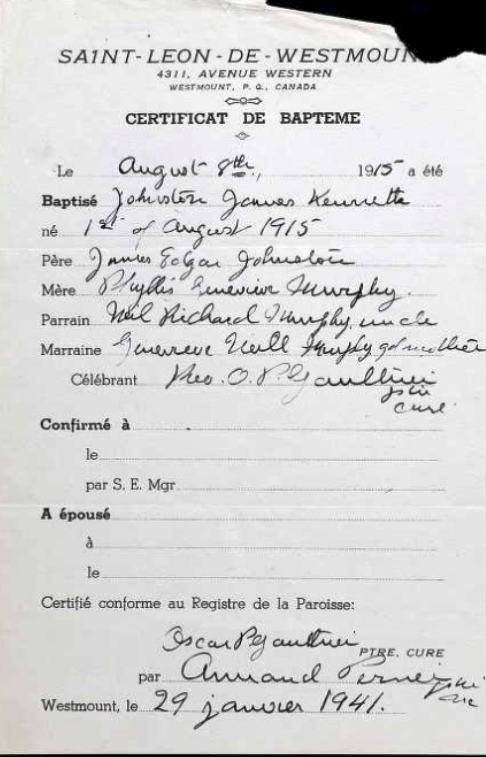 SAINT-LEON-DE-WESTMOUN
4311, AVENUE WESTERN
WESTMOUNT, P. Q., CANADA
CERTIFICAT DE BAPTEME
Le August 8th, 1915 a été
Baptisé Johnston James Kennette
né 1st of August 1915
Père James Edgar Johnston
Mère Phyllis Genevieve Murphy.
Parrain Neil Richard Murphy, uncle
Marraine Genevieve Neill Murphy godmother
Célébrant O. P. Gaulthier
curé
Confirmé à
le
par S. E. Mgr
A épousé
à
le
Certifié conforme au Registre de la Paroisse:
Oscar P. Gaulthier
PTRE, CURE
par Armand
Westmount, le 29 janvier 1941.